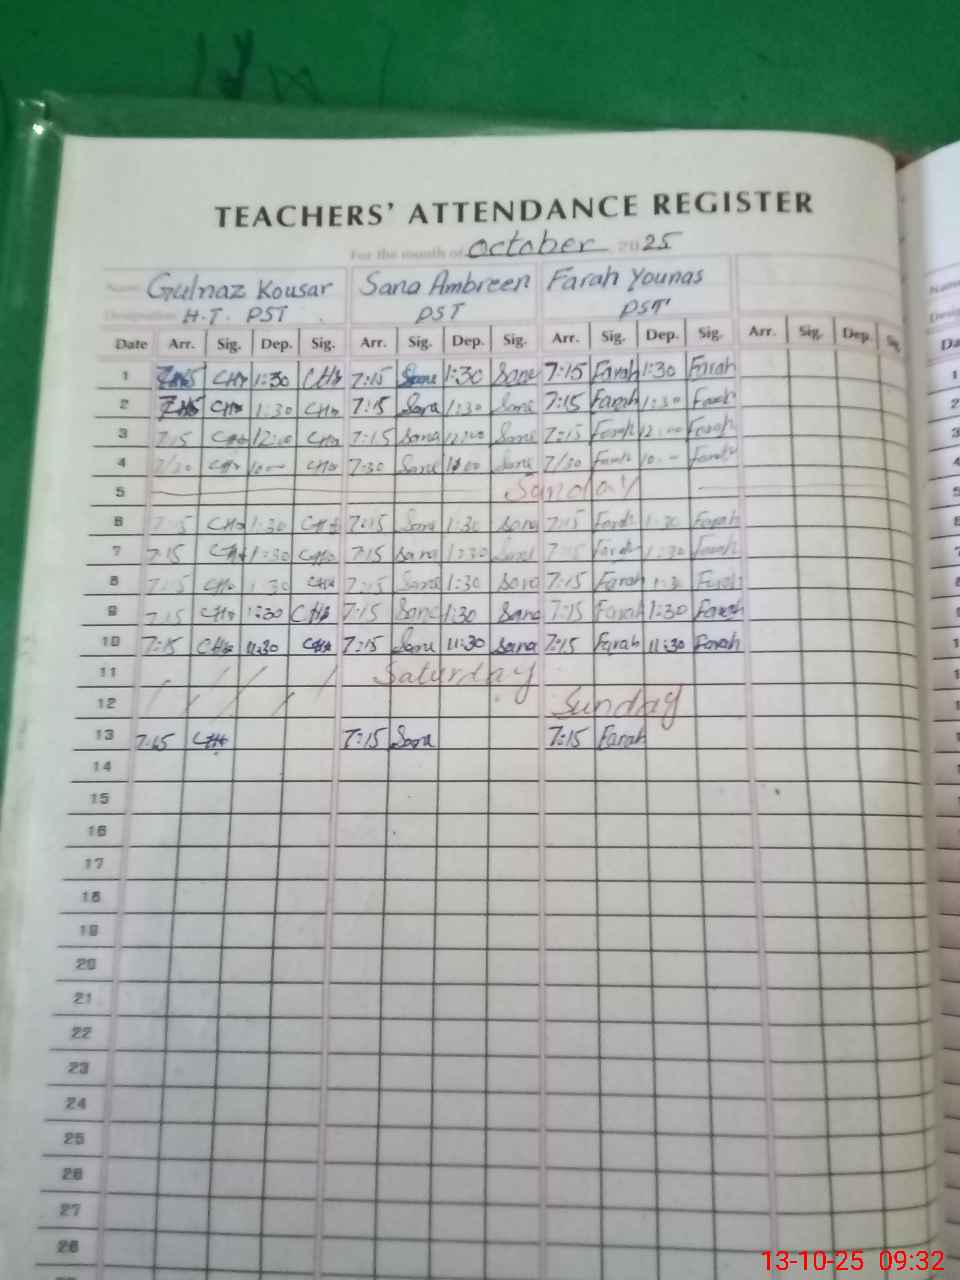 TEACHERS' ATTENDANCE REGISTER
For the month of October 2025
Name Gulnaz Kousar Sana Ambreen Farah Younas
Designation H.T. PST PST PST
Date Arr. Sig. Dep. Sig. Arr. Sig. Dep. Sig. Arr. Sig. Dep. Sig. Arr. Sig. Dep. Sig.
1 1:30 7:15 Sana 1:30 Sana 7:15 Farah 1:30 Farah
2 1:30 7:15 Sana 1:30 Sana 7:15 Farah 1:30 Farah
3 7:15 12:00 7:15 Sana 12:00 Sana 7:15 Farah 12:00 Farah
4 7/30 10:— 7:30 Sana Sana 7/30 Farah 10:— Farah
5 Sanday
6 7:15 1:30 7:15 Sana 1:30 Sana 7:15 Farah 1:30 Farah
7 7:15 1:30 7:15 Sana 1:30 Sana 7:15 Farah 1:30 Farah
8 7:15 1:30 7:15 Sana 1:30 Sana 7:15 Farah 1:30 Farah
9 7:15 1:30 7:15 Sana 1:30 Sana 7:15 Farah 1:30 Farah
10 7:15 11:30 7:15 Sana 11:30 Sana 7:15 Farah 11:30 Farah
11 Saturday
12 Sunday
13 7:15 7:15 Sana 7:15 Farah
14
15
16
17
18
19
20
21
22
23
24
25
26
27
28
13-10-25 09:32